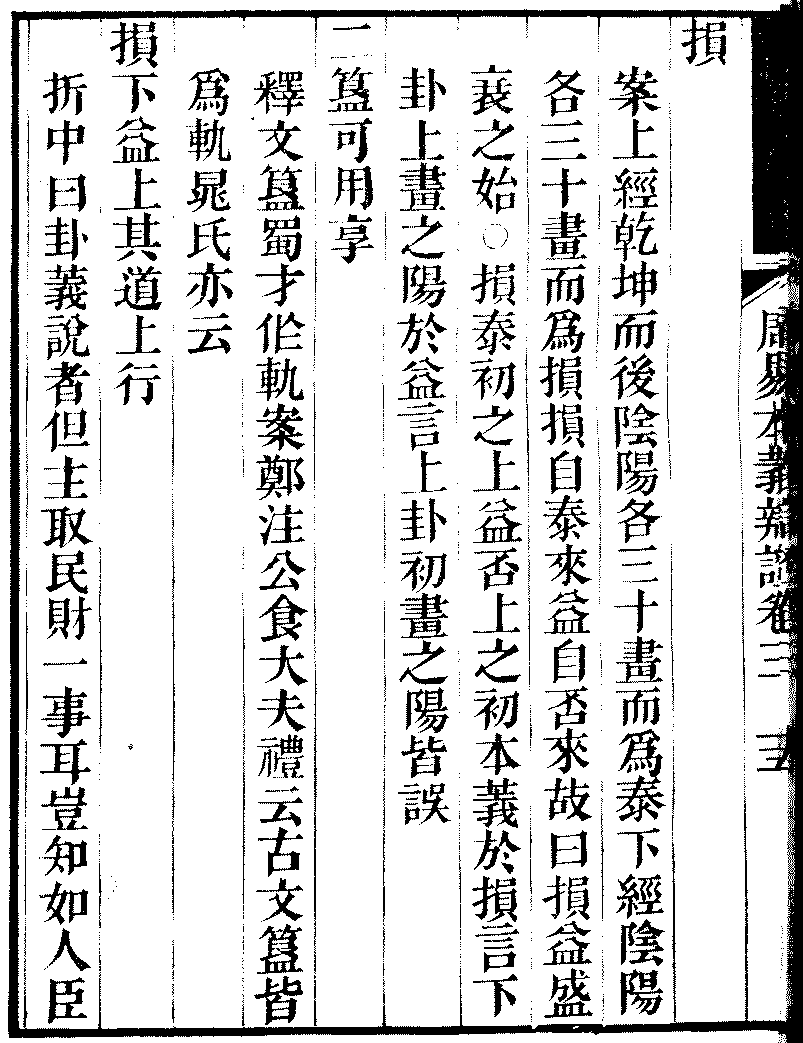 損
案上經乾坤而後陰陽各三十畫而爲泰下經陰陽
各三十畫而爲損損自泰來益自否來故曰損益盛
衰之始○損泰初之上益否上之初本義於損言下
卦上畫之陽於益言上卦初畫之陽皆誤
二簋可用享
釋文簋蜀才作軌案鄭注公食大夫禮云古文簋皆
爲軌晁氏亦云
損下益上其道上行
折中曰卦義說者但主取民財一事耳豈知如人臣
周易本義辯證卷三